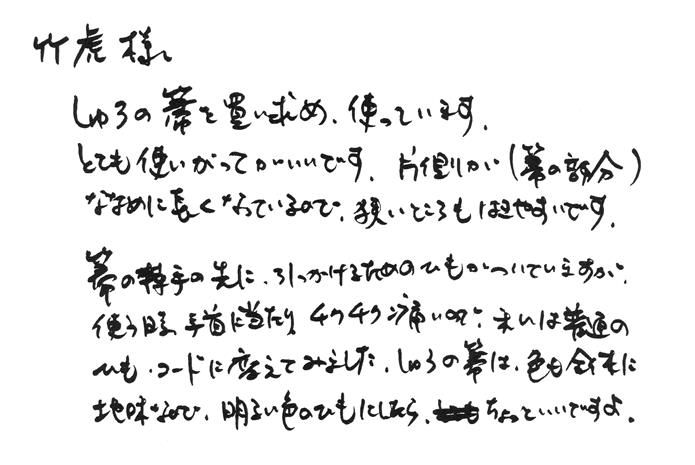 竹虎様
しゅろの箒を買い求め、使っています。
とても使いがってがいいです。片側が(箒の部分)
ななめに長くなっているので、狭いところもはきやすいです。
箒の持手の先に、引っかけるためのひもがついていますが、
使う時、手首に当たり チクチク痛いので、私は普通の
ひも・コードに変えてみました。しゅろの箒は、色も全体に
地味なので、明るい色のひもにしたら、ちょっといいですよ。